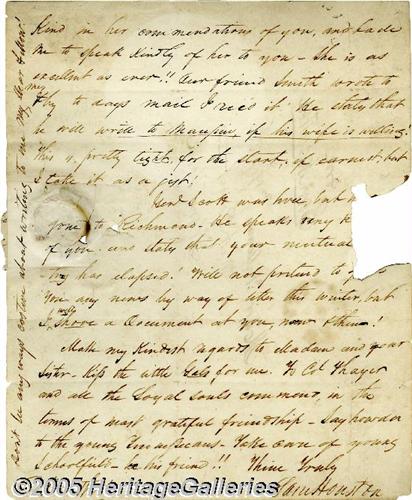 Kind in her commendations of you, and bade
me to speak kindly of her to you - She is as
excellent as ever!! Our friend Smith wrote to
me & by to days mail I recd it. He states that
he will write to if his wife is willing!
This is pretty tight, for the start, of earnest, but
I take it as a jist!
Genl Scott was here, but
gone to Richmond - He speaks very k
of you and states that your mutual
has elapsed! Will not pretend to g
You any news by way of letter this winter, but
I will shove a Document at you, now & then!
Make my Kindest regards to Madam and your
Sister - Kiss the little Gals for me. To Col Thayer
and all the Loyal souls commend, in the
terms of most grateful friendship - Say howdee
to the young Take care of young
be his friend!! Thine Truly
Sam Houston
Don't be any ways costive about writing to me My dear
©2005 HeritageGalleries